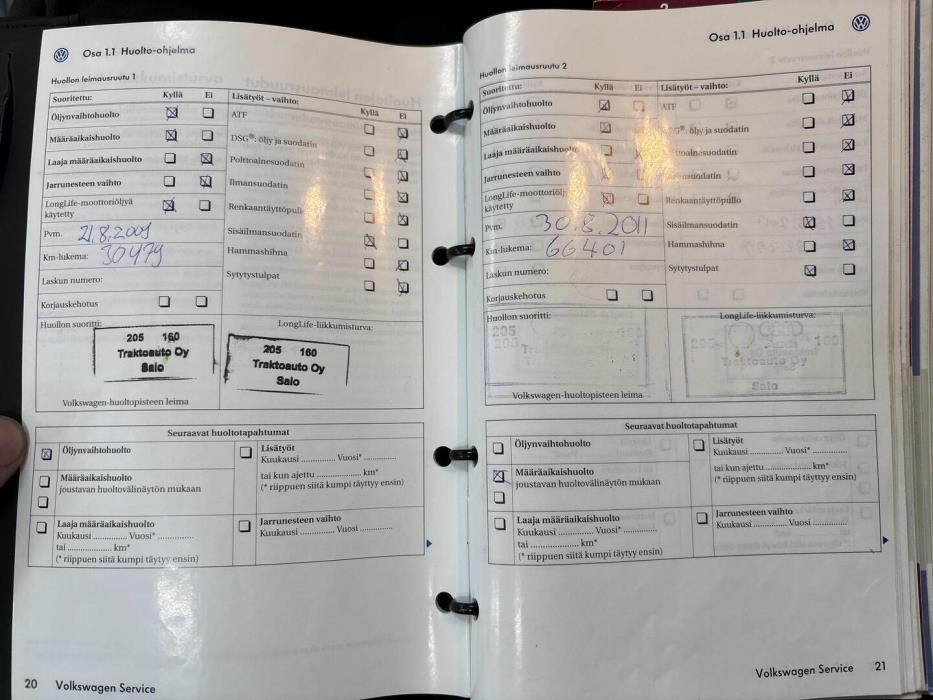 Osa 1.1 Huolto-ohjelma
Huollon leimausruutu 1
Suoritettu: Kyllä Ei Lisätyöt – vaihto: Kyllä Ei
Öljynvaihtohuolto ATF
Määräaikaishuolto DSG®: öljy ja suodatin
Laaja määräaikaishuolto Polttoainesuodatin
Jarrunesteen vaihto Ilmansuodatin
LongLife-moottoriöljyä Renkaantäyttöpullo
käytetty Sisäilmansuodatin
Pvm. 21.8.2009 Hammashihna
Km-lukema: 30979 Sytytystulpat
Laskun numero:
Korjauskehotus
Huollon suoritti: LongLife-liikkumisturva:
205 160 205 160
Traktoauto Oy Traktoauto Oy
Salo Salo
Volkswagen-huoltopisteen leima
Seuraavat huoltotapahtumat
Öljynvaihtohuolto Lisätyöt
Kuukausi ............ Vuosi* ............
Määräaikaishuolto tai kun ajettu ............ km*
joustavan huoltovälinäytön mukaan (* riippuen siitä kumpi täyttyy ensin)
Laaja määräaikaishuolto Jarrunesteen vaihto
Kuukausi ............ Vuosi* ............ Kuukausi ............ Vuosi ............
tai ............ km*
(* riippuen siitä kumpi täytyy ensin)
20 Volkswagen Service
Osa 1.1 Huolto-ohjelma
Huollon leimausruutu 2
Suoritettu: Kyllä Ei Lisätyöt – vaihto: Kyllä Ei
Öljynvaihtohuolto ATF
Määräaikaishuolto öljy ja suodatin
Laaja
Jarrunesteen vaihto
LongLife-moottoriöljyä Renkaantäyttöpullo
käytetty Sisäilmansuodatin
Pvm. 30.8.2011 Hammashihna
Km-lukema: 66401 Sytytystulpat
Laskun numero:
Korjauskehotus
Huollon suoritti: LongLife-liikkumisturva:
205 160
Traktoauto Oy
Salo
Volkswagen-huoltopisteen leima
Seuraavat huoltotapahtumat
Öljynvaihtohuolto Lisätyöt
Kuukausi ............ Vuosi* ............
Määräaikaishuolto tai kun ajettu ............ km*
joustavan huoltovälinäytön mukaan (* riippuen siitä kumpi täyttyy ensin)
Laaja määräaikaishuolto Jarrunesteen vaihto
Kuukausi ............ Vuosi* ............ Kuukausi ............ Vuosi ............
tai ............ km*
(* riippuen siitä kumpi täytyy ensin)
Volkswagen Service 21